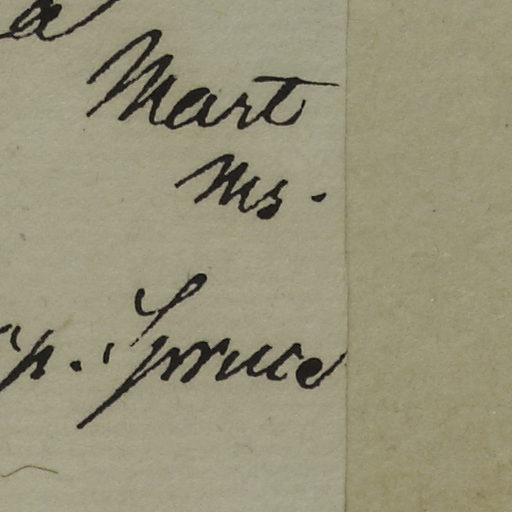 a
Mart
Ms.
p. Spruce